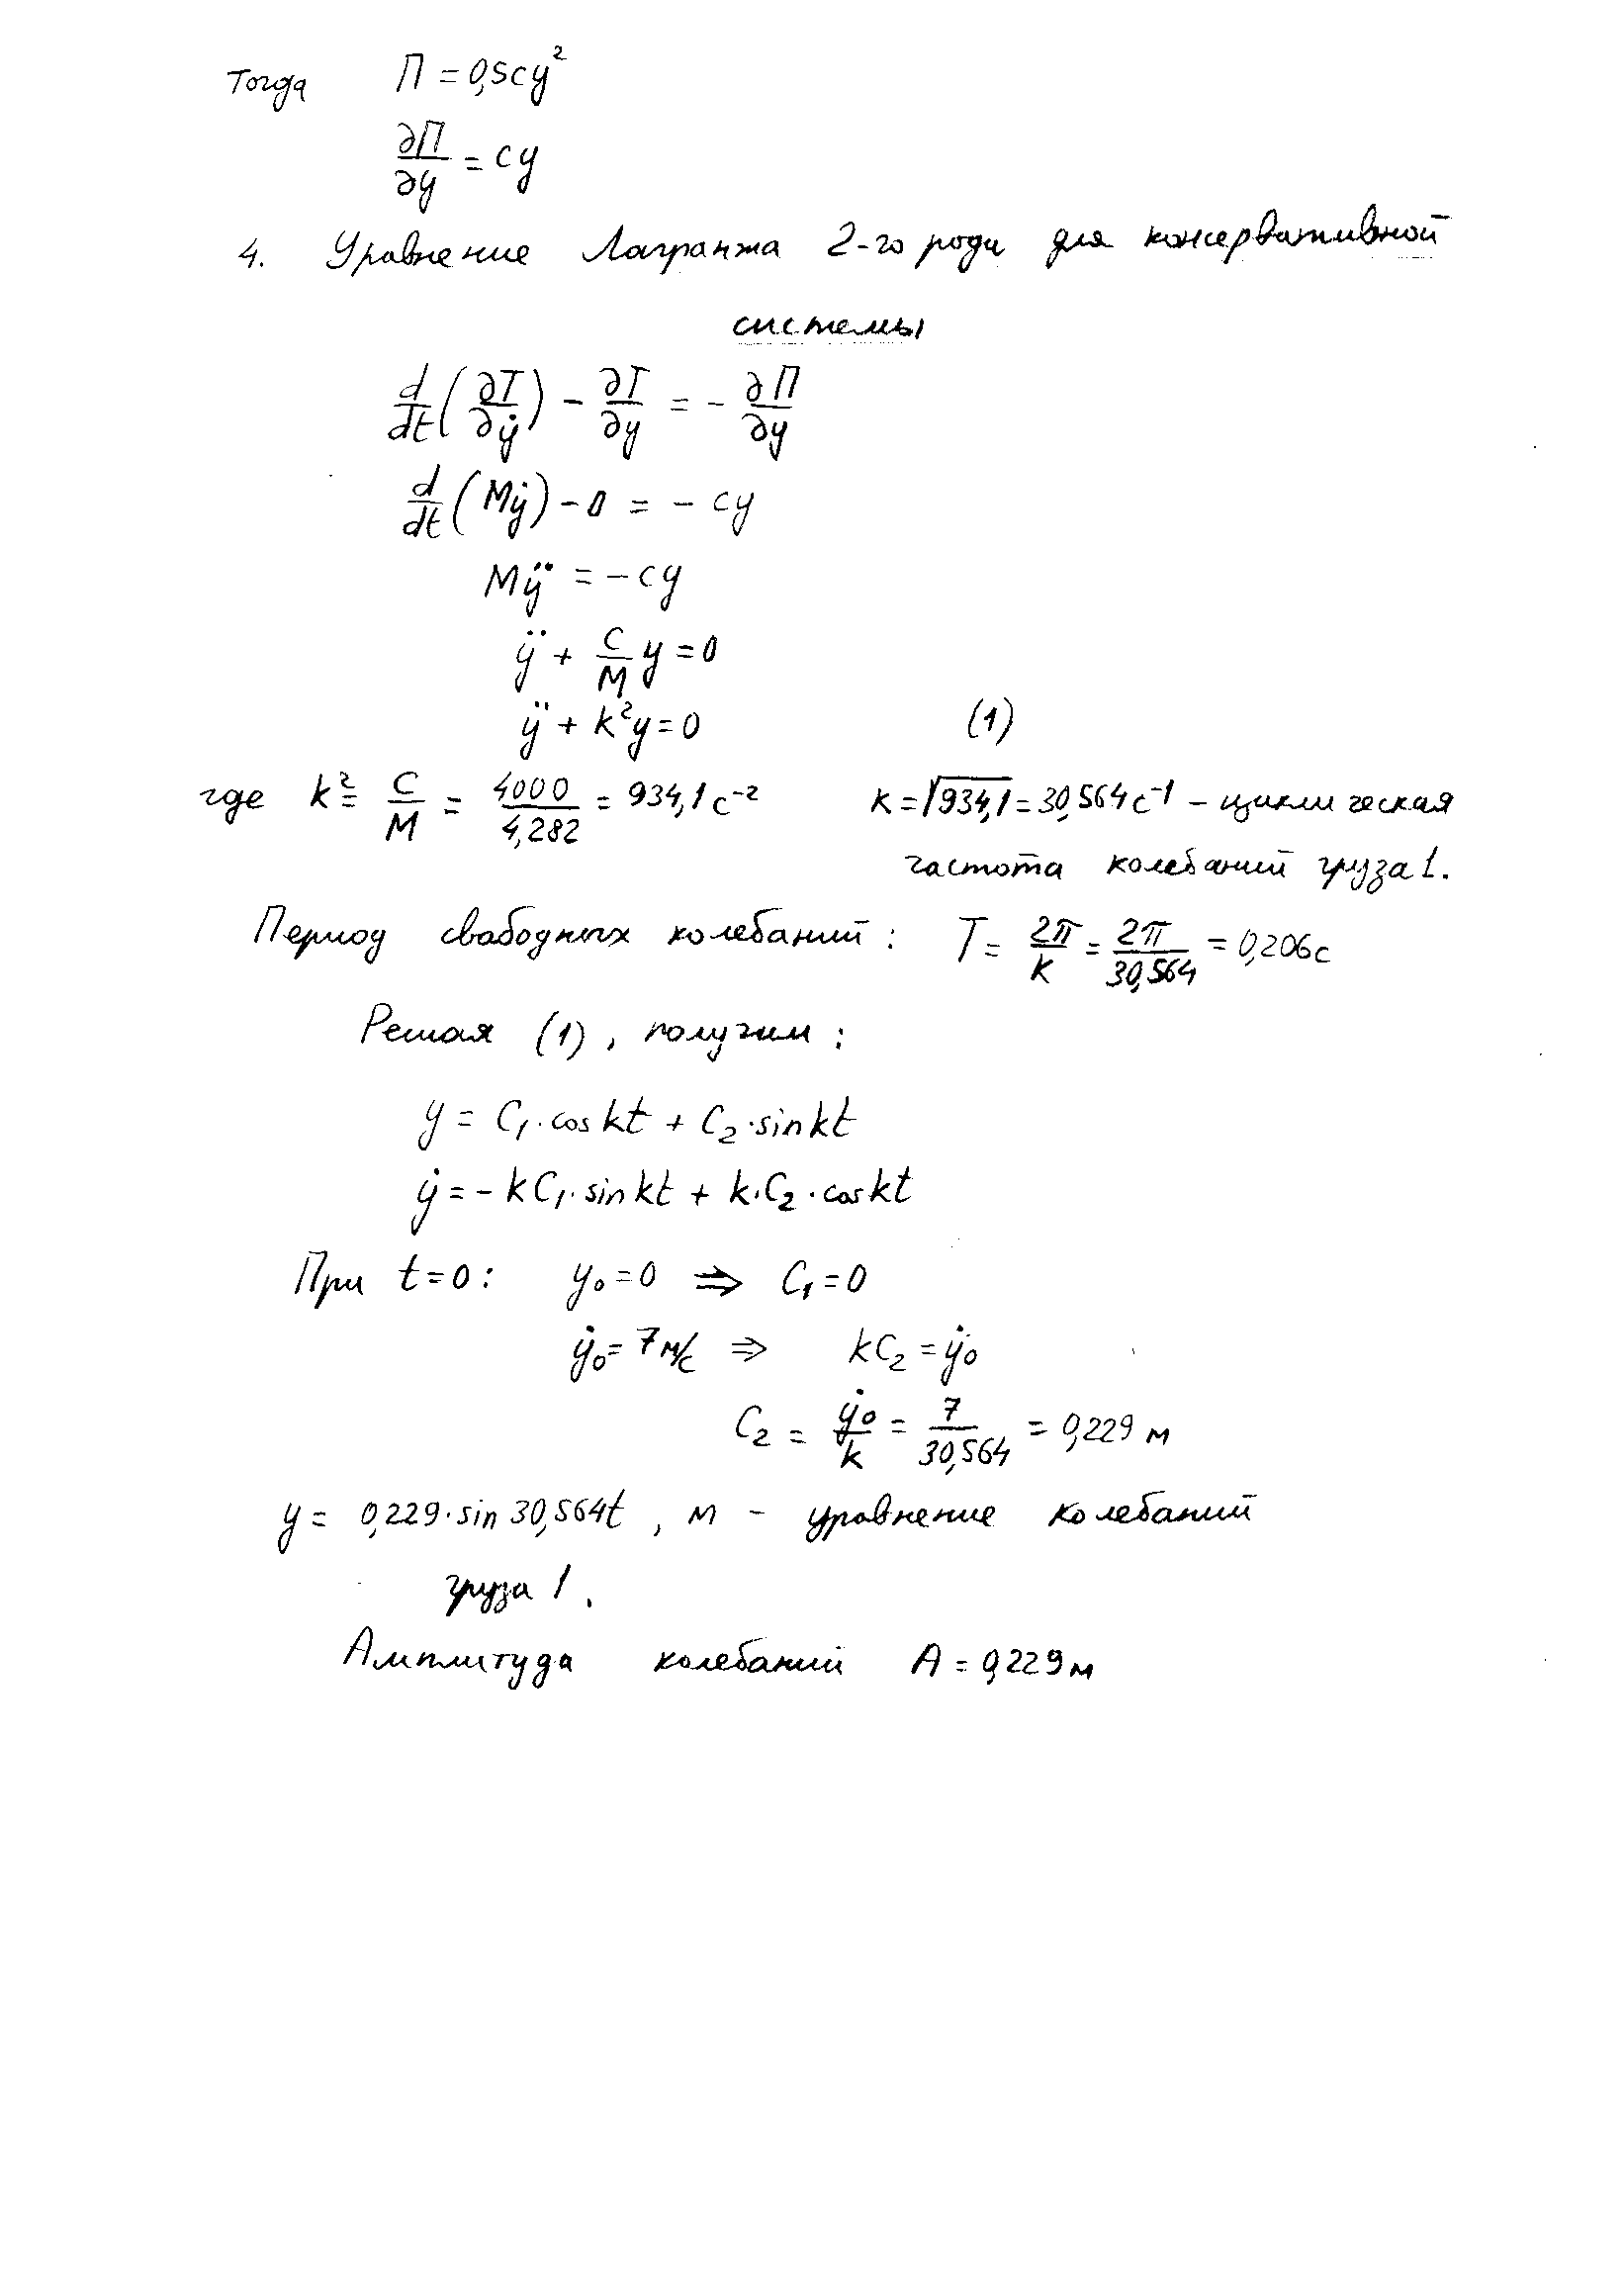 Тогда П = 0,5cy²
∂П/∂y = cy
4. Уравнение Лагранжа 2-го рода для консервативной
системы
d/dt(∂T/∂ẏ) - ∂T/∂y = - ∂П/∂y
d/dt(Mẏ) - 0 = - cy
Mÿ = - cy
ÿ + c/M y = 0
ÿ + k²y = 0 (1)
где k² = c/M = 4000/4,282 = 934,1 с⁻² k = √934,1 = 30,564 с⁻¹ - циклическая
частота колебаний груза 1.
Период свободных колебаний: T = 2π/k = 2π/30,564 = 0,206 с
Решая (1), получим:
y = C₁·cos kt + C₂·sin kt
ẏ = - kC₁·sin kt + k·C₂·cos kt
При t = 0: y₀ = 0 ⇒ C₁ = 0
ẏ₀ = 7 м/с ⇒ kC₂ = ẏ₀
C₂ = ẏ₀/k = 7/30,564 = 0,229 м
y = 0,229·sin 30,564t, м - уравнение колебаний
груза 1.
Амплитуда колебаний A = 0,229 м